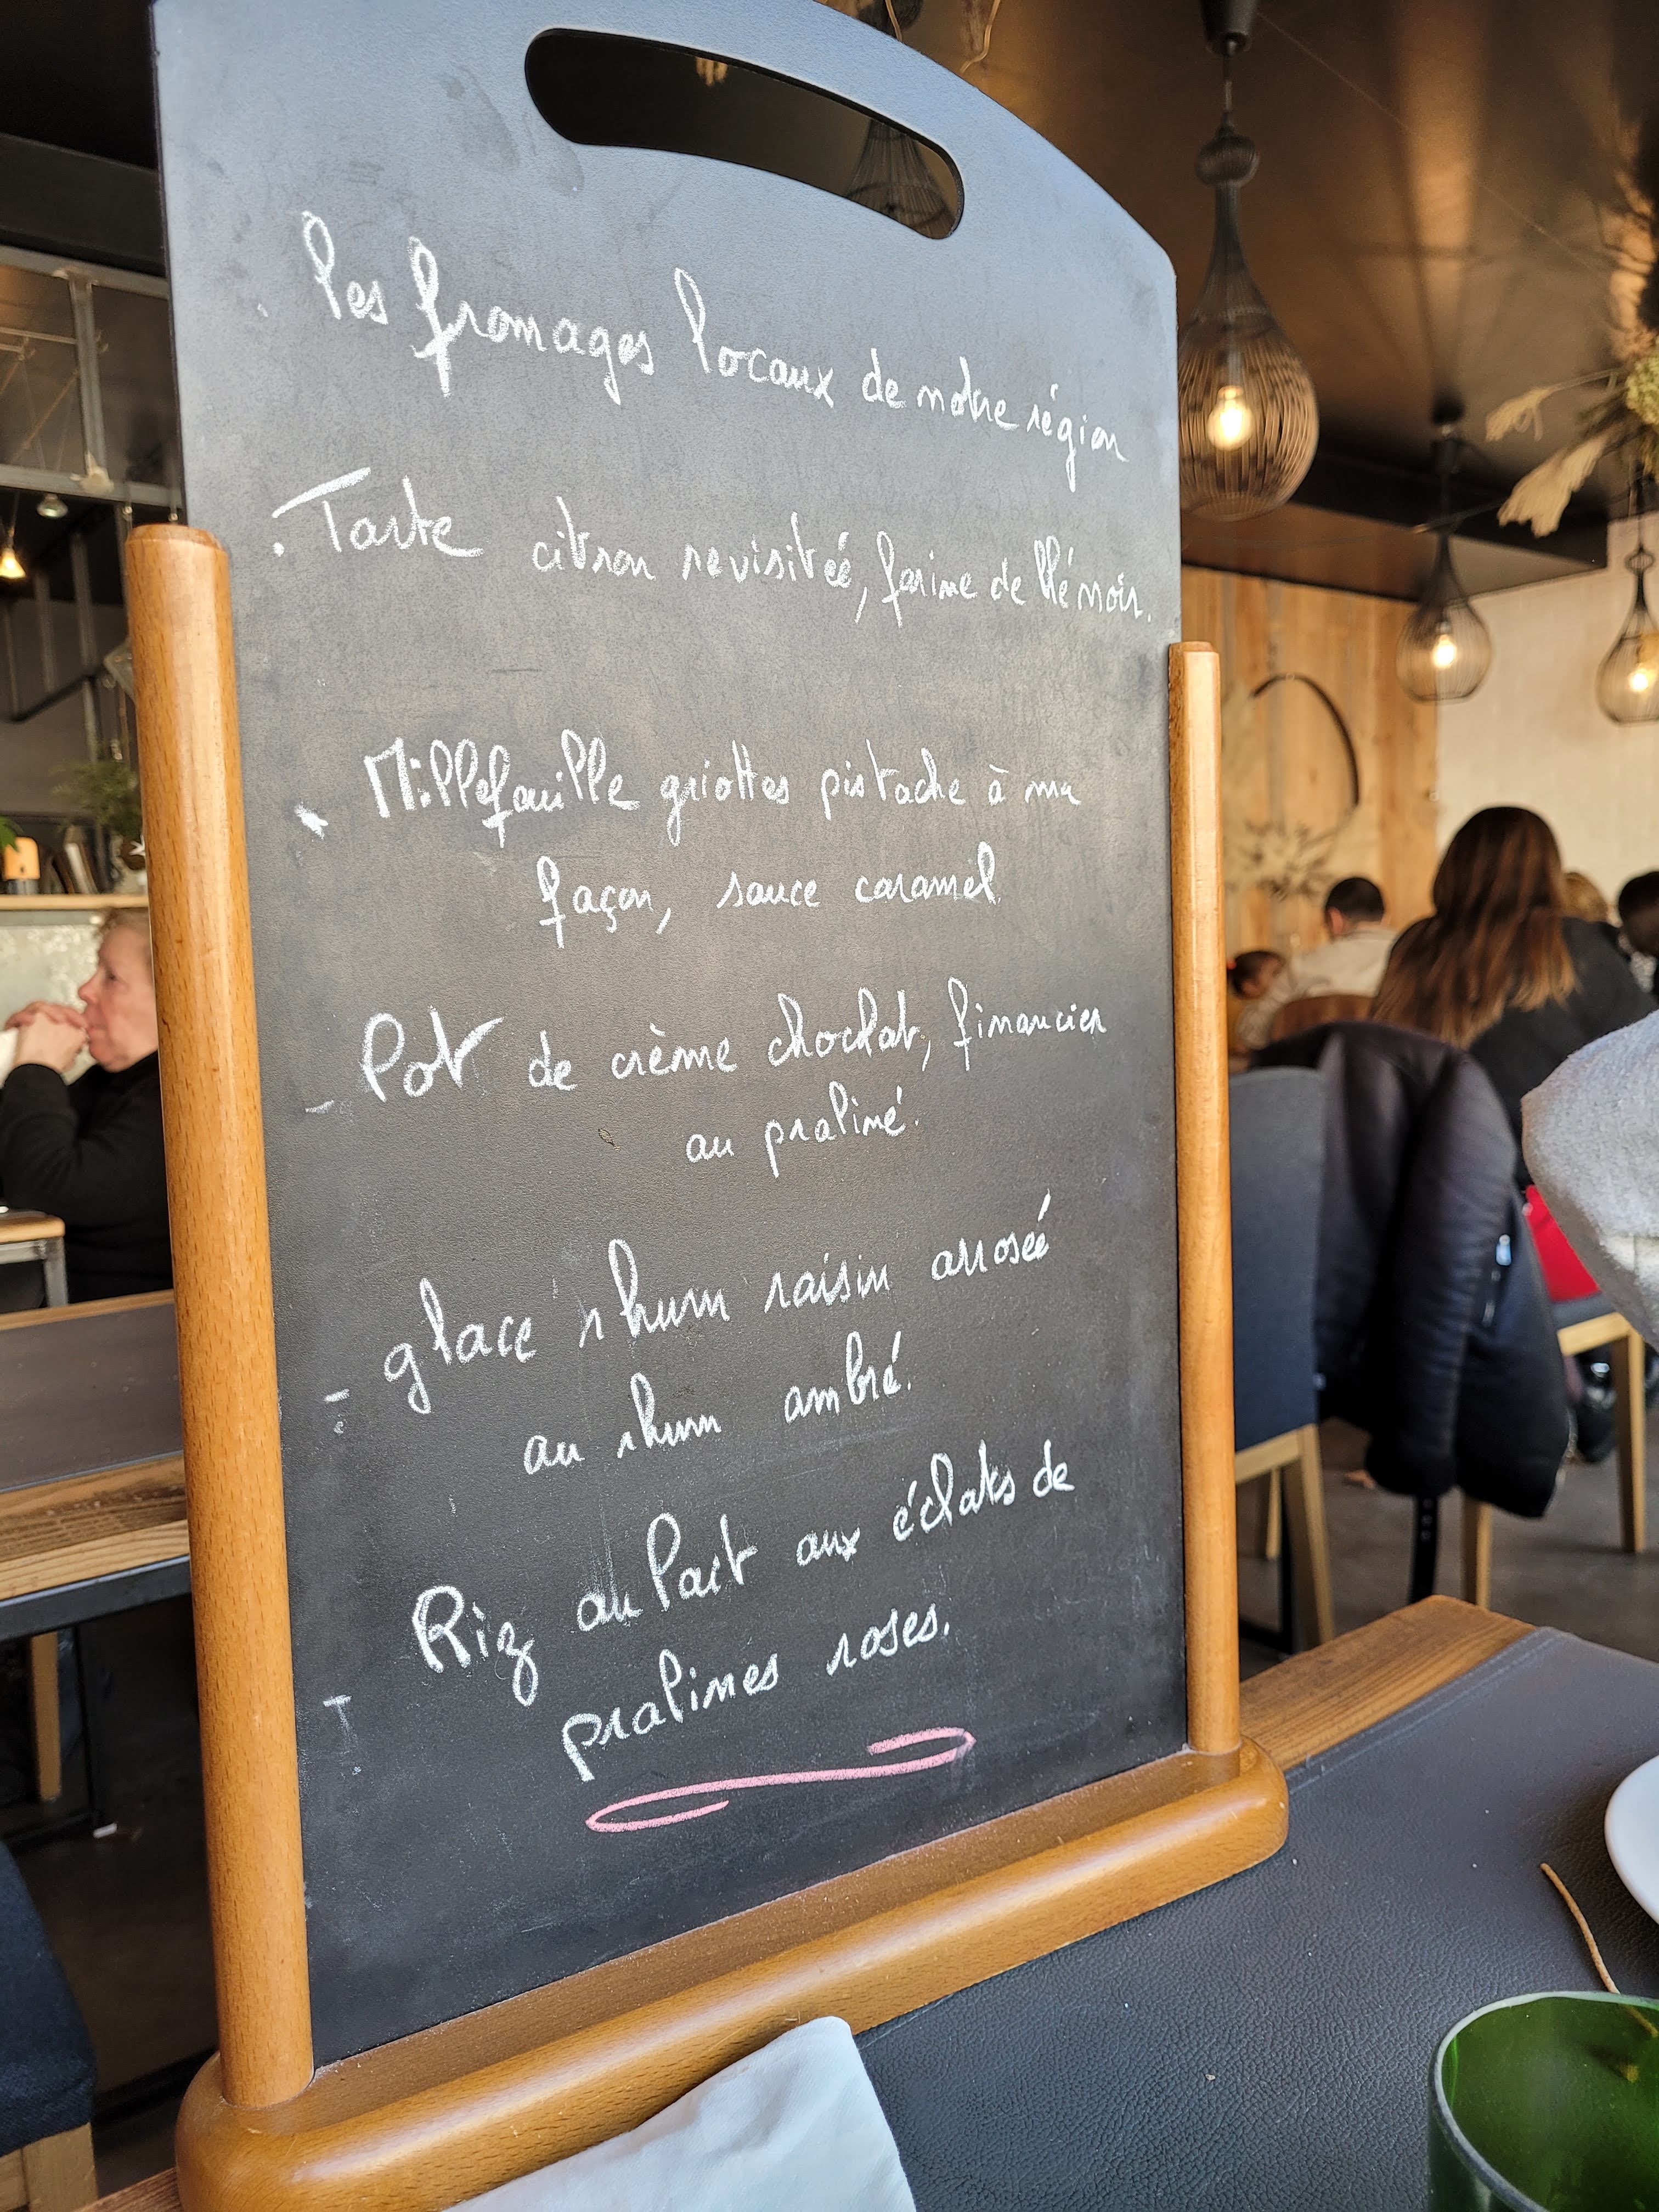 . les fromages locaux de notre région
. Tarte citron revisitéé, farine de blé noir.
. Millefeuille griottes pistache à ma
façon, sauce caramel
- Pot de crème choclat, financier
au praliné.
- glace rhum raisin arroséé
au rhum ambré.
- Riz au lait aux éclats de
pralines roses.